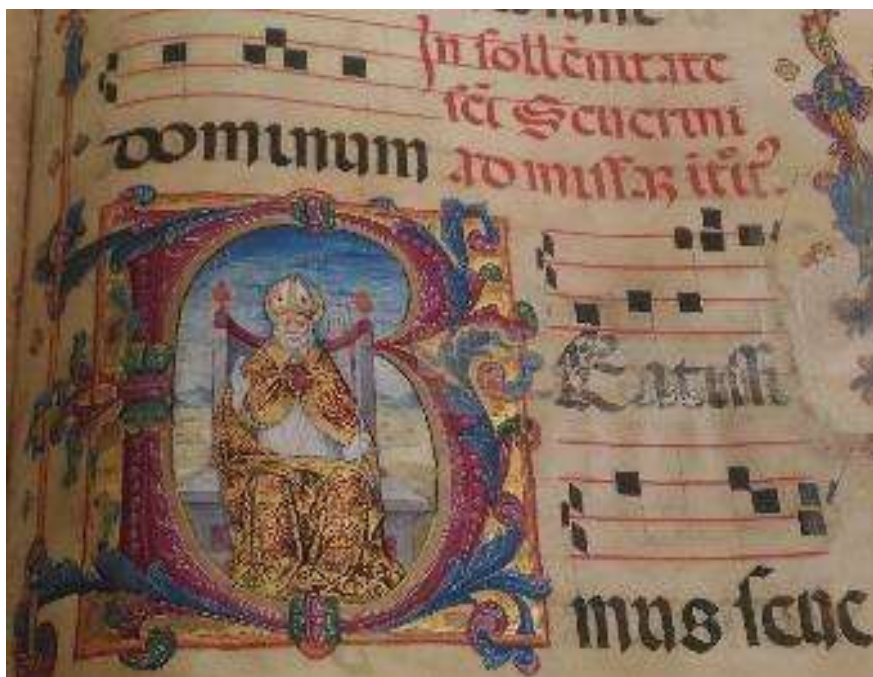 In sollēnitate
sc̄i Seuerini
dominum
ad missaꝫ
B Eatissi
mus seue